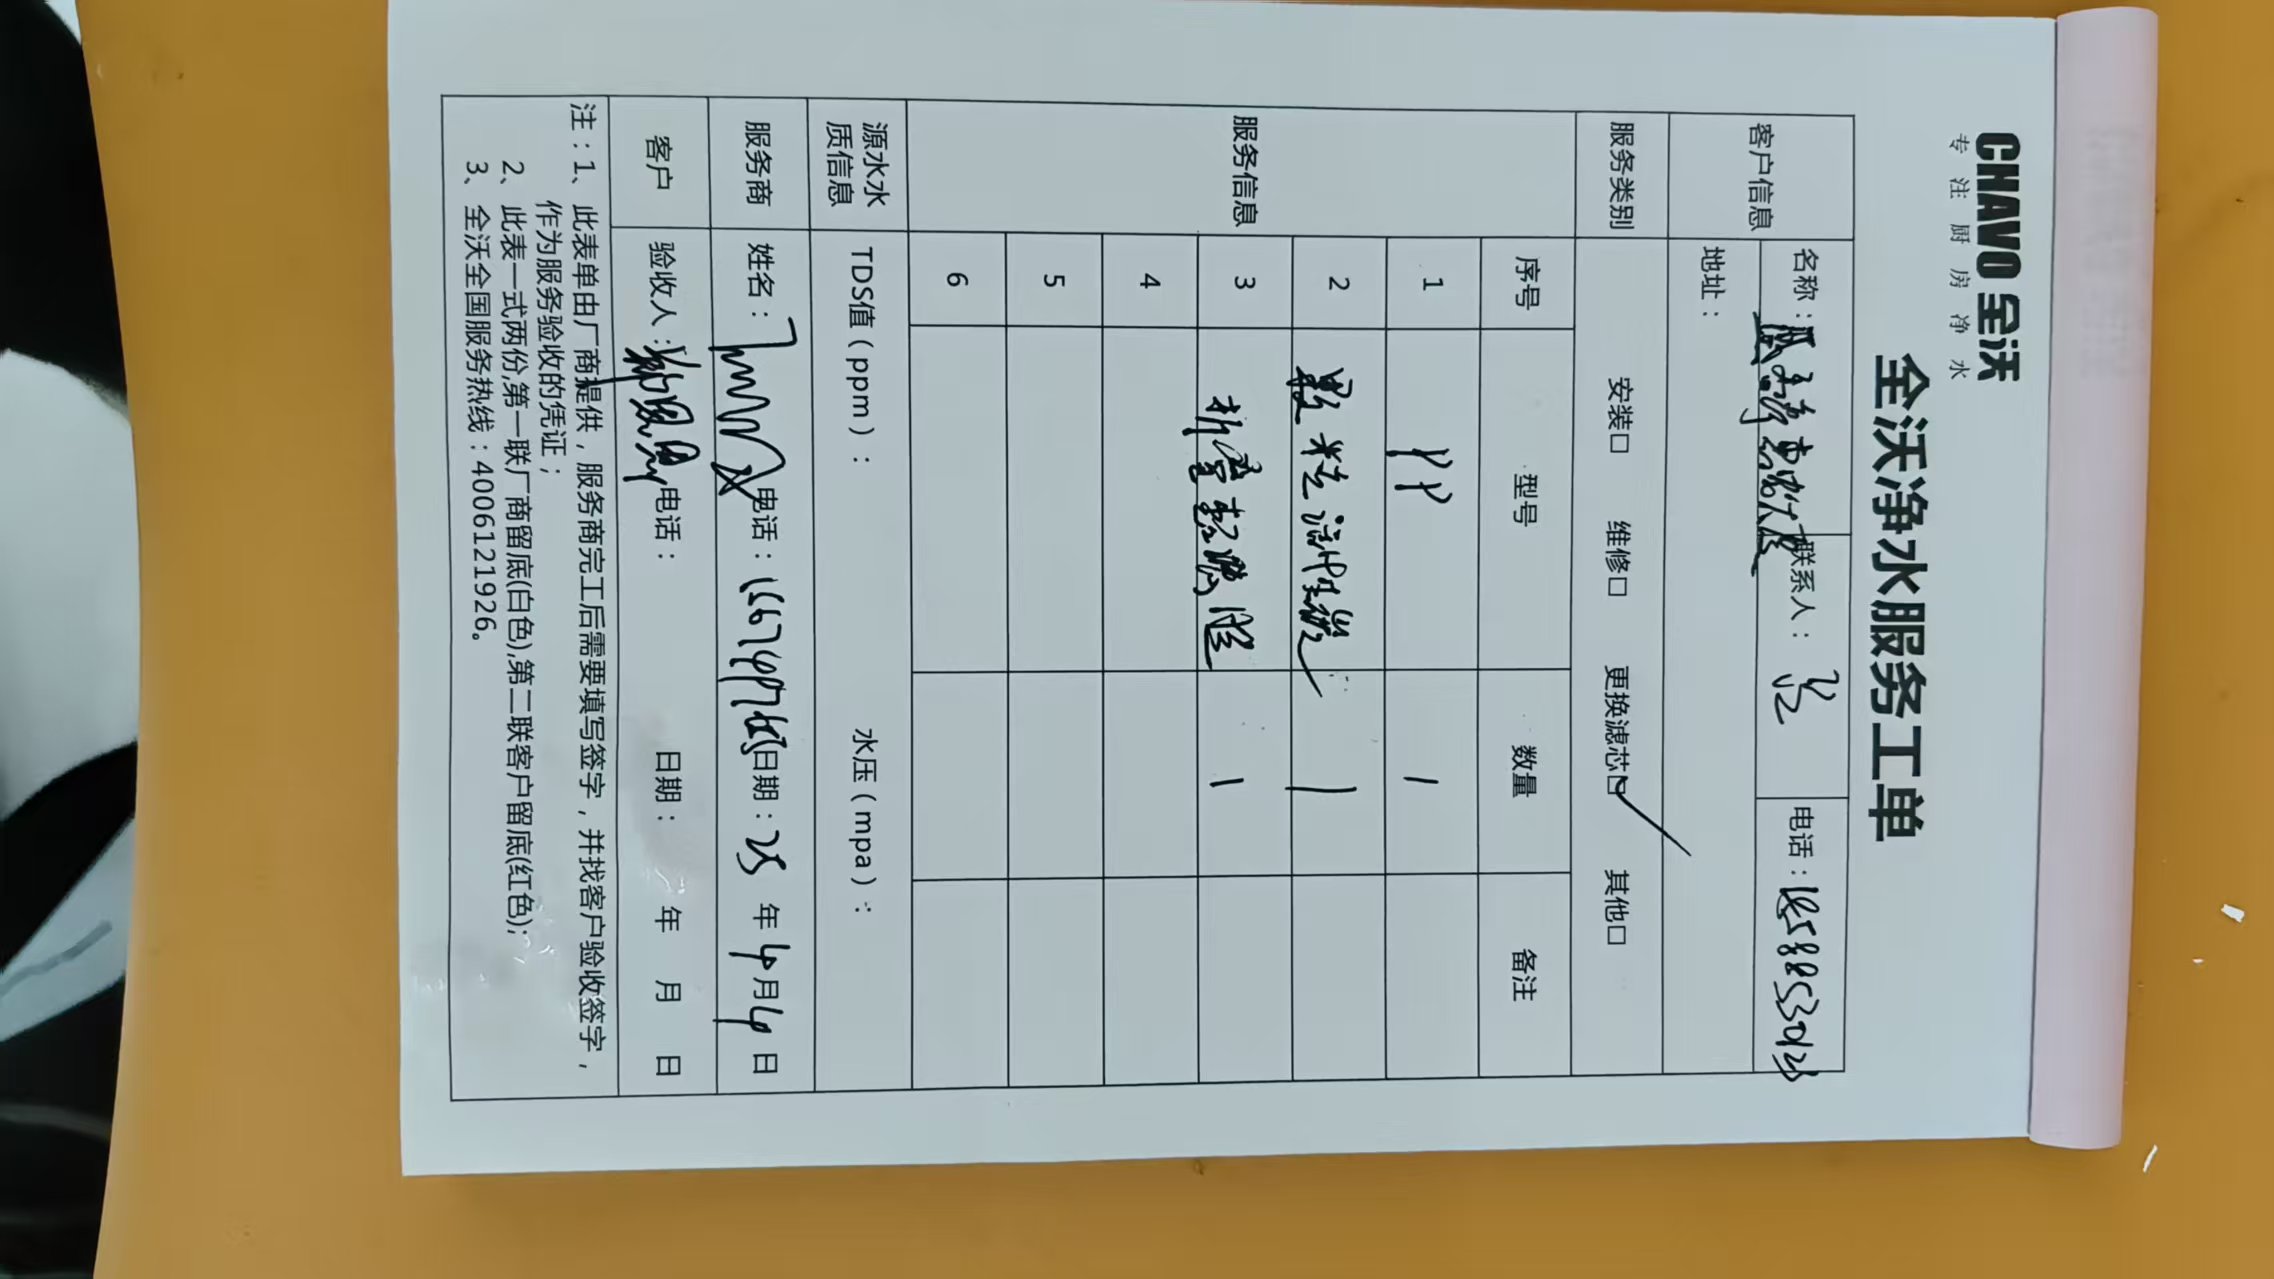 CHAVO 全沃
专注厨房净水
全沃净水服务工单
客户信息 名称： 联系人： 电话：18588530123
地址：
服务类别 安装□ 维修□ 更换滤芯□✓ 其他□
服务信息 序号 型号 数量 备注
1 PP 1
2 颗粒活性炭 1
3 1
4
5
6
源水水质信息 TDS值（ppm）： 水压（mpa）：
服务商 姓名： 电话： 日期：25 年 4 月 14 日
客户 验收人： 电话： 日期： 年 月 日
注：1、此表单由厂商提供，服务商完工后需要填写签字，并找客户验收签字，
作为服务验收的凭证；
2、此表一式两份,第一联厂商留底(白色),第二联客户留底(红色);
3、全沃全国服务热线：4006121926。